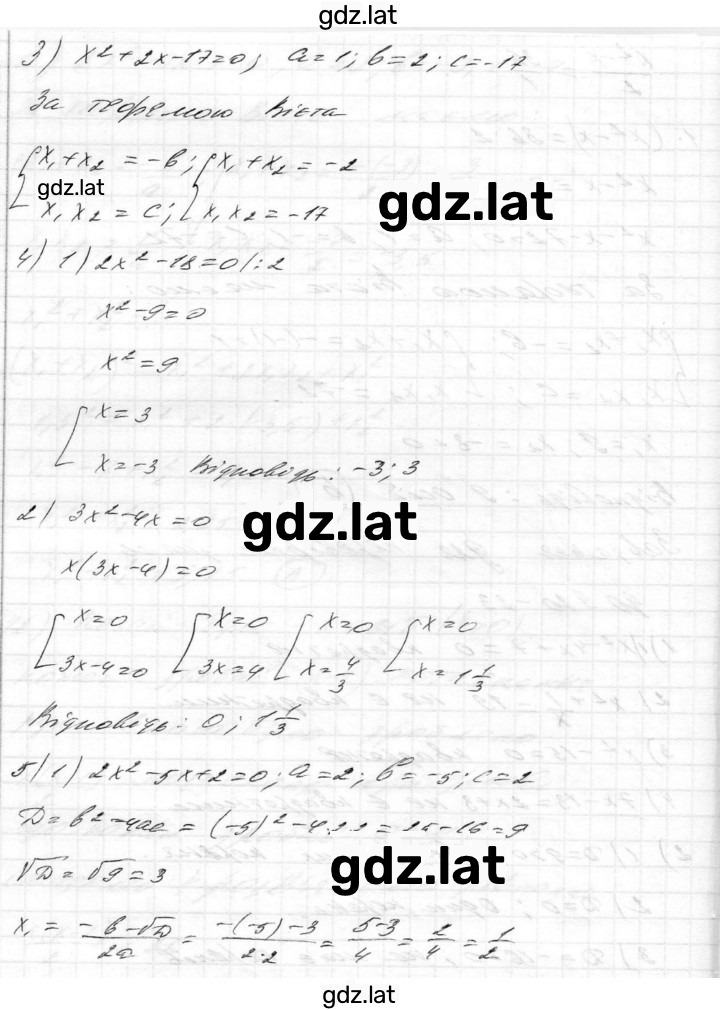 gdz.lat
3) x²+2x-17=0; a=1; b=2; c=-17
За теоремою Вієта
{x₁+x₂=-b; {x₁+x₂=-2
gdz.lat
gdz.lat
x₁x₂=c; x₁x₂=-17
4) 1) 2x²-18=0/:2
x²-9=0
x²=9
[x=3
x=-3 Відповідь: -3; 3
2) 3x²-4x=0
gdz.lat
x(3x-4)=0
[x=0 [x=0 [x=0 [x=0
3x-4=0 3x=4 x=4/3 x=1 1/3
Відповідь: 0; 1 1/3
5) 1) 2x²-5x+2=0; a=2; b=-5; c=2
D=b²-4ac=(-5)²-4·2·2=25-16=9
gdz.lat
√D=√9=3
x₁=(-b-√D)/2a=(-(-5)-3)/(2·2)=(5-3)/4=2/4=1/2
gdz.lat